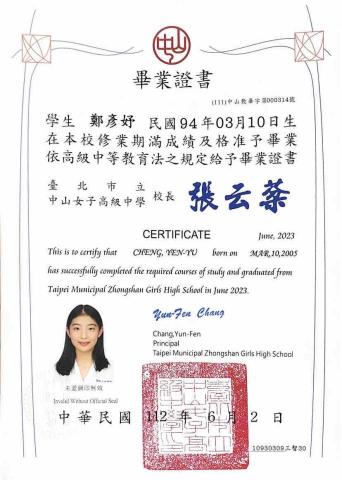 畢業證書
(111)中山教畢字第000314號
學生 鄭彥妤 民國94年03月10日生
在本校修業期滿成績及格准予畢業
依高級中等教育法之規定給予畢業證書
臺北市立
中山女子高級中學 校長 張云棻
CERTIFICATE June, 2023
This is to certify that CHENG, YEN-YU born on MAR,10,2005
has successfully completed the required courses of study and graduated from
Taipei Municipal Zhongshan Girls High School in June 2023.
Yun-Fen Chang
Chang,Yun-Fen
Principal
Taipei Municipal Zhongshan Girls High School
未蓋鋼印無效
Invalid Without Official Seal
中華民國 112 年 6 月 2 日
10930309三智30